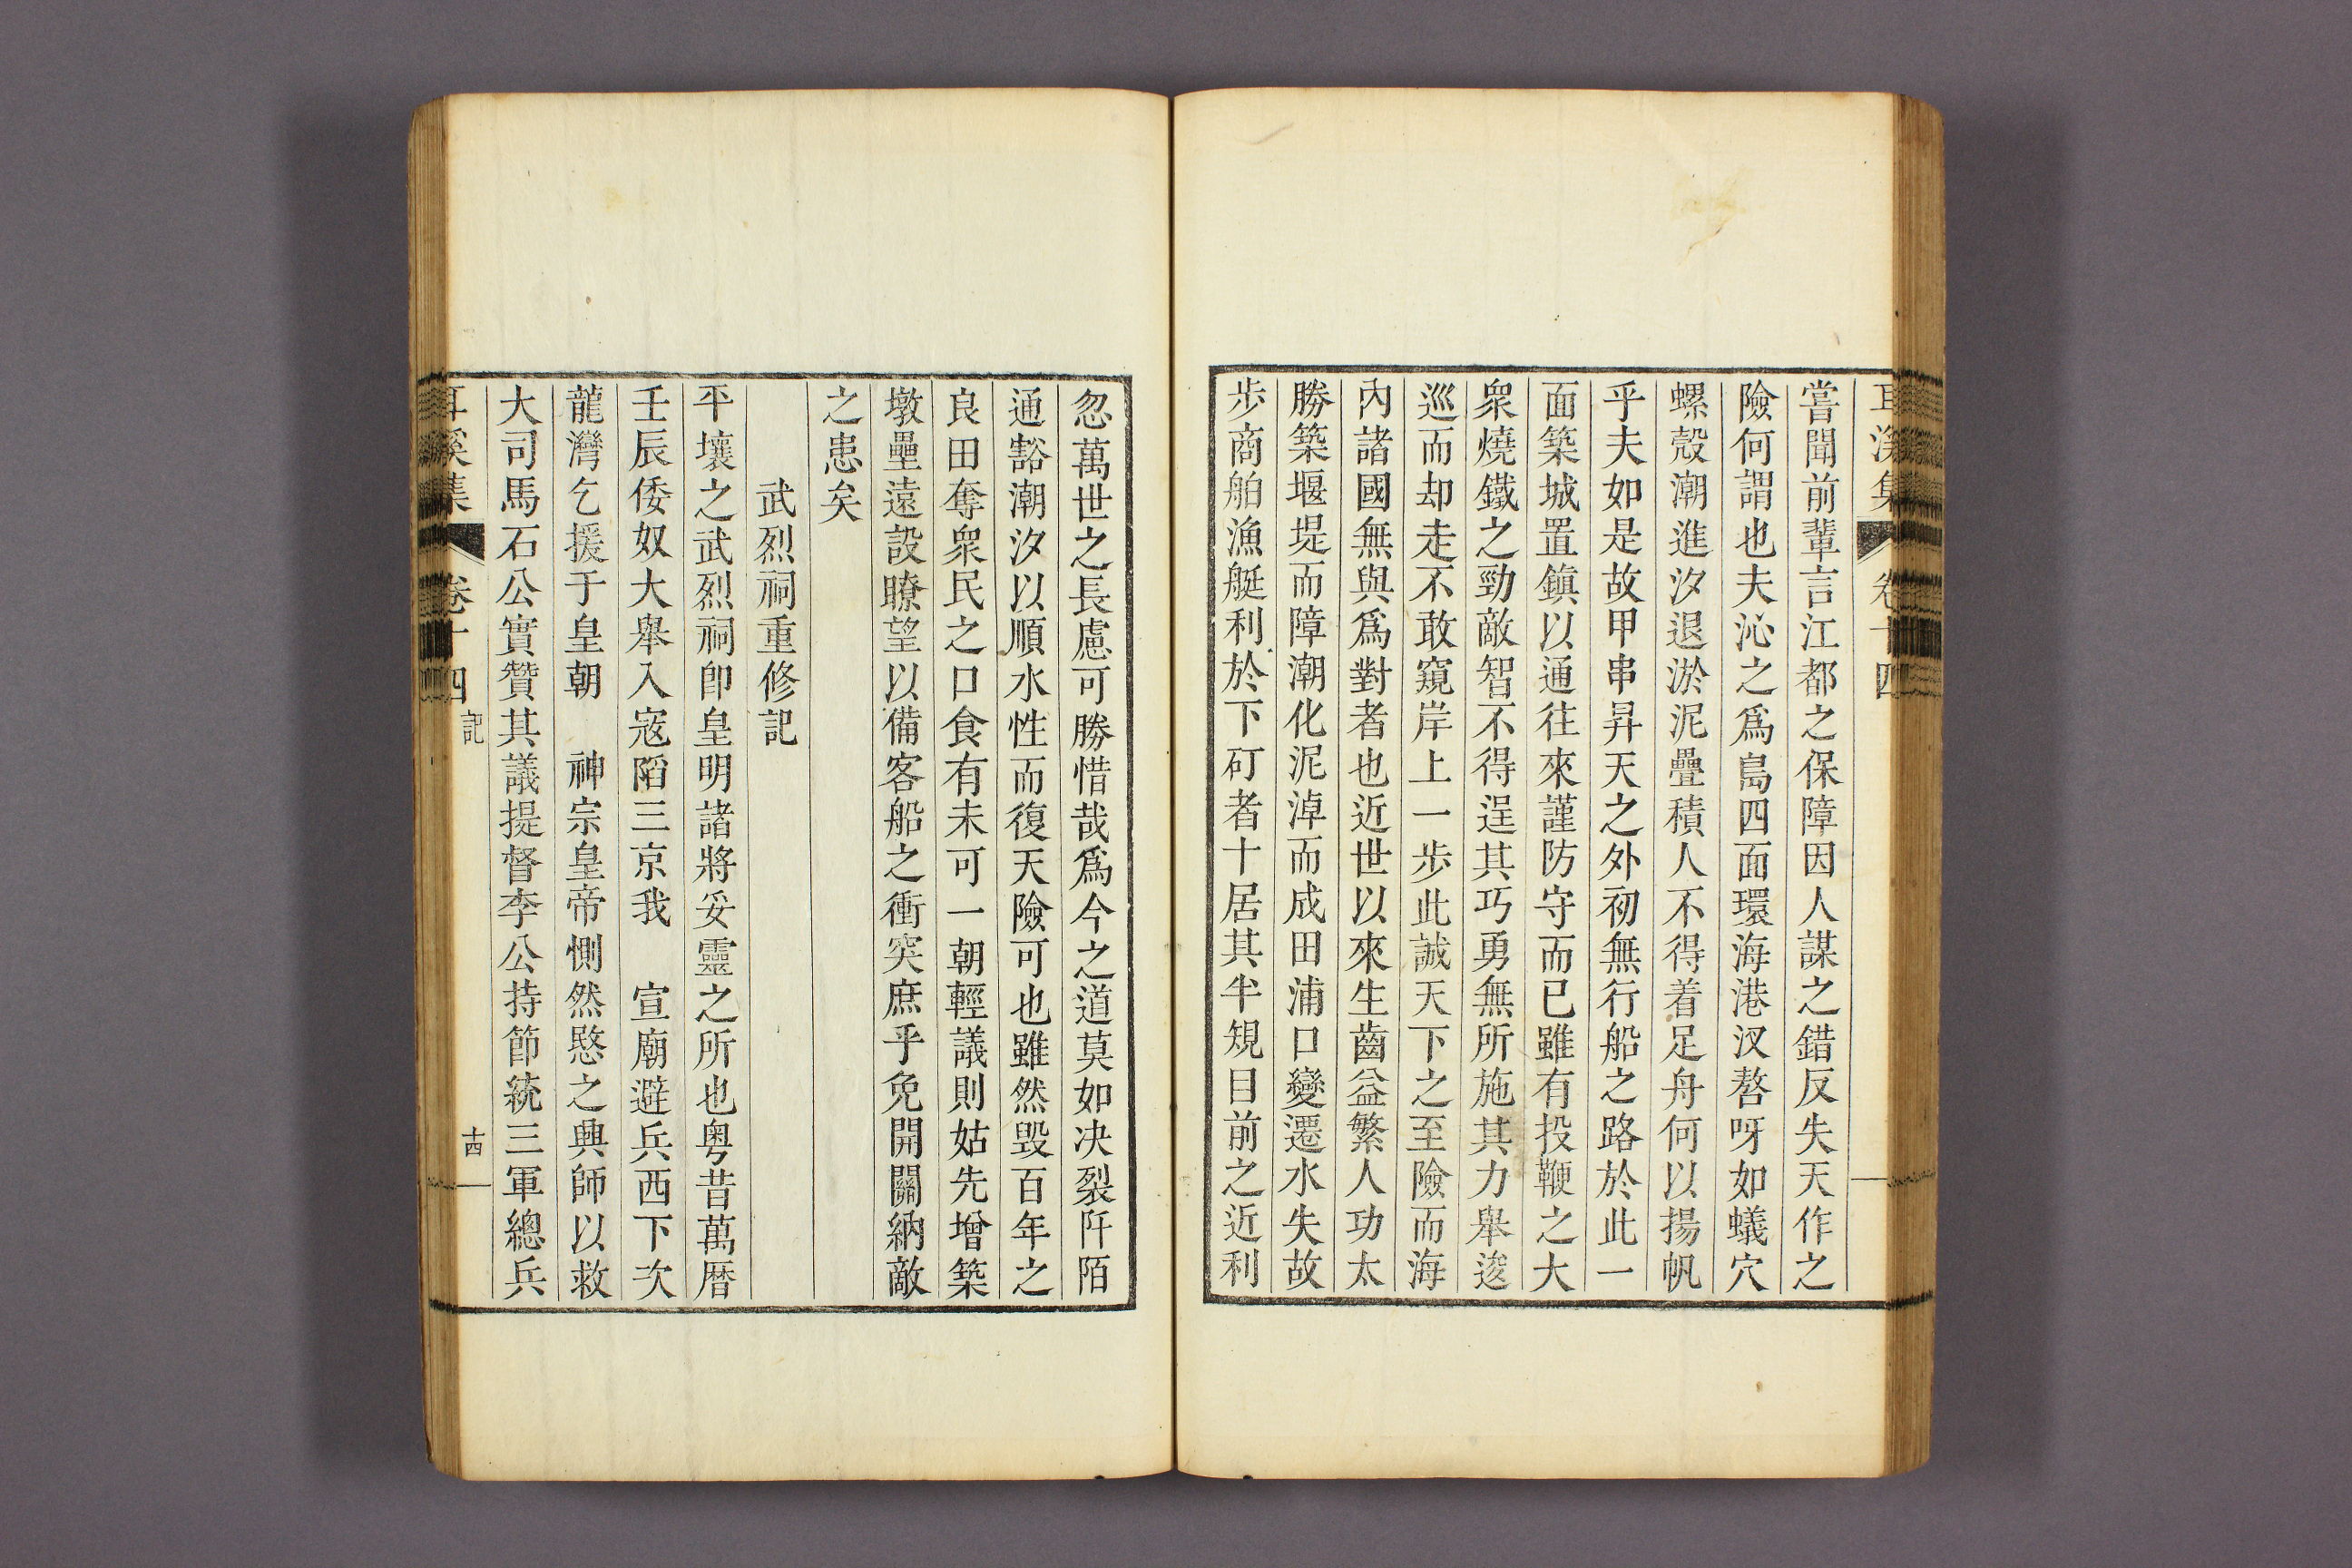 耳溪集 卷十四
嘗聞前輩言江都之保障因人謀之錯反失天作之
險何謂也夫沁之爲島四面環海港汊嗸呀如蟻穴
螺殼潮進汐退淤泥疊積人不得着足舟何以揚帆
乎夫如是故甲串昇天之外初無行船之路於此一
面築城置鎮以通往來謹防守而已雖有投鞭之大
衆燒鐵之勁敵智不得逞其巧勇無所施其力舉逡
巡而却走不敢窺岸上一步此誠天下之至險而海
內諸國無與爲對者也近世以來生齒益繁人功太
勝築堰堤而障潮化泥淖而成田浦口變遷水失故
步商舶漁艇利於下矴者十居其半規目前之近利
忽萬世之長慮可勝惜哉爲今之道莫如决裂阡陌
通豁潮汐以順水性而復天險可也雖然毀百年之
良田奪衆民之口食有未可一朝輕議則姑先增築
墩壘遠設瞭望以備客船之衝突庶乎免開關納敵
之患矣
武烈祠重修記
平壤之武烈祠卽皇明諸將妥靈之所也粵昔萬曆
壬辰倭奴大舉入寇陷三京我 宣廟避兵西下次
龍灣乞援于皇朝 神宗皇帝惻然愍之興師以救
大司馬石公實贊其議提督李公持節統三軍總兵
耳溪集 卷十四 記 十四